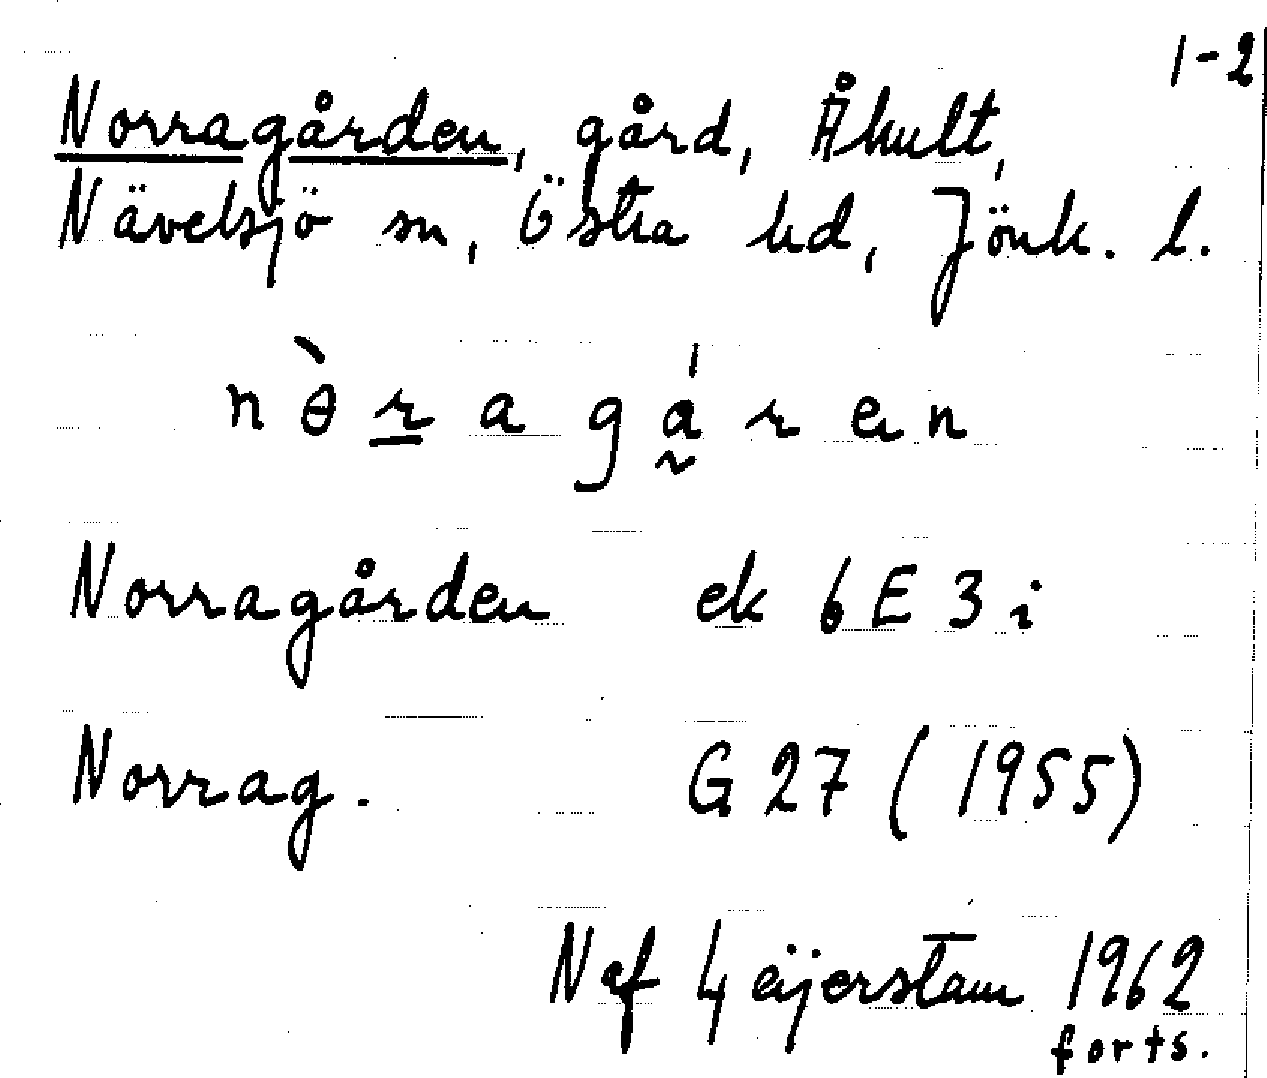 1-2
Norragården, gård, Åhult,
Nävelsjö sn, Östra hd, Jönk. l.
nὸ̀ragá̰ren
Norragården ek 6E3i
Norrag. G27 (1955)
N af Geijerstam 1962
forts.